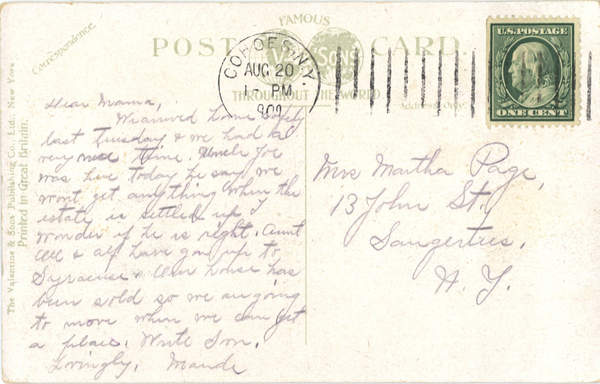 Correspondence.
FAMOUS
POST CARD.
& SONS
THROUGHOUT THE WORLD
Address Only.
COHOES, N.Y.
AUG 20
PM
U.S. POSTAGE
ONE CENT
The Valentine & Sons Publishing Co., Ltd., New York
Printed in Great Britain.
Dear Mama,
We arrived home safely
last Tuesday & we had a
very nice time. Uncle Joe
was here today he say we
wont get anything when the
estate is settled up I
wonder if he is right. Aunt
& all have gone up to
Syracuse. Our house has
been sold so we are going
to move when we can get
a place. Write Son.
Lovingly, Maude
Mrs Martha Page,
13 John St.
Saugerties,
N. Y.